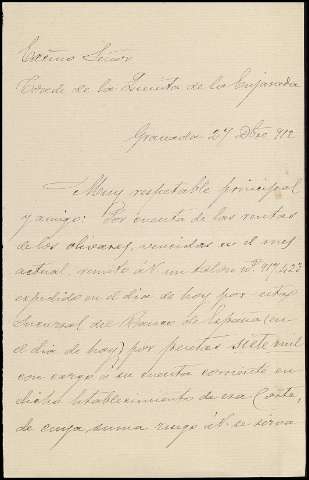 Excmo Señor
Conde de la Quinta de la Enjarada
Granada 27 Dbre 912
Muy respetable principal
y amigo: Por cuenta de las rentas
de los olivares, vencidas en el mes
actual, remito á V. un talon nº. 917,423
expedido en el dia de hoy por esta
Sucursal del Banco de España (en
el dia de hoy) por pesetas siete mil
con cargo á su cuenta corriente en
dicho Establecimiento de esa Corte,
de cuya suma ruego á V. se sirva